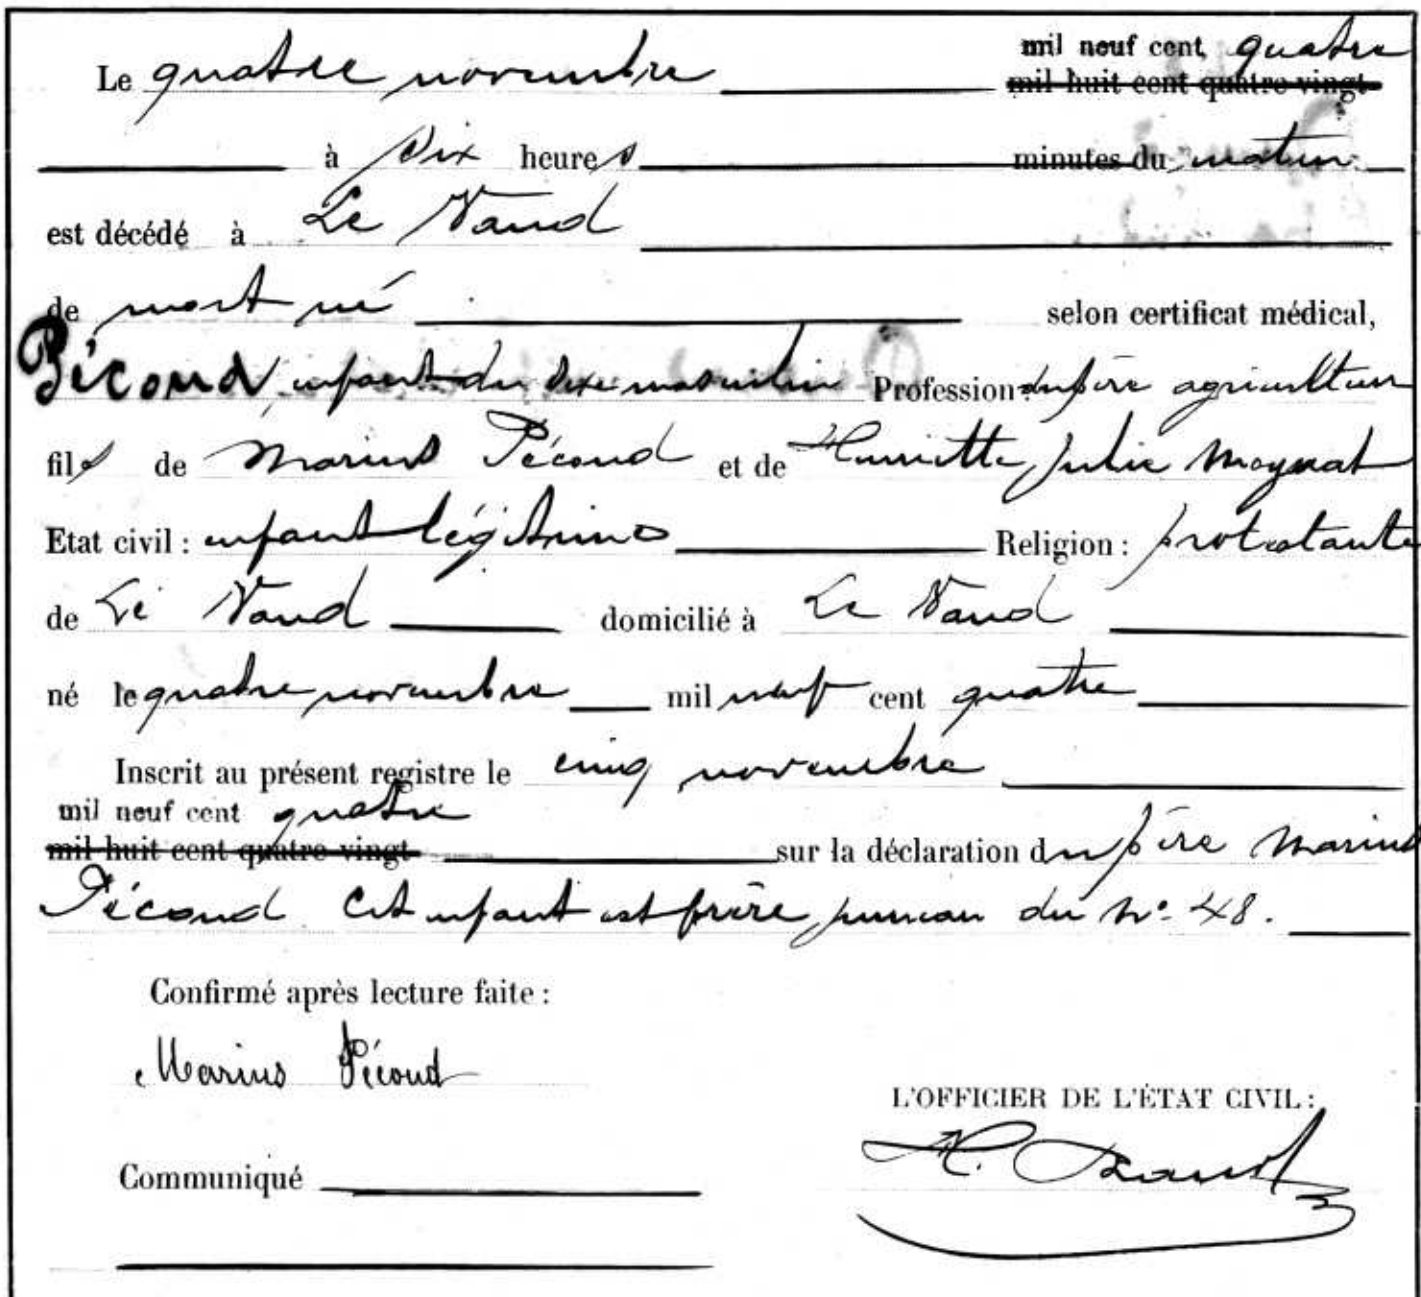 mil neuf cent quatre
Le quatre novembre mil huit cent quatre-vingt
à dix heures minutes du matin
est décédé à Le Vaud
de mort né selon certificat médical,
Pécoud, enfant du sexe masculin Profession: du père agriculteur
fils de Marius Pécoud et de Henriette Julie Moynat
Etat civil : enfant légitime Religion : protestante
de Le Vaud domicilié à Le Vaud
né le quatre novembre mil neuf cent quatre
Inscrit au présent registre le cinq novembre
mil neuf cent quatre
mil huit cent quatre-vingt sur la déclaration du père Marius
Pécoud Cet enfant est frère jumeau du No. 48.
Confirmé après lecture faite :
Marius Pécoud
L'OFFICIER DE L'ÉTAT CIVIL :
Communiqué